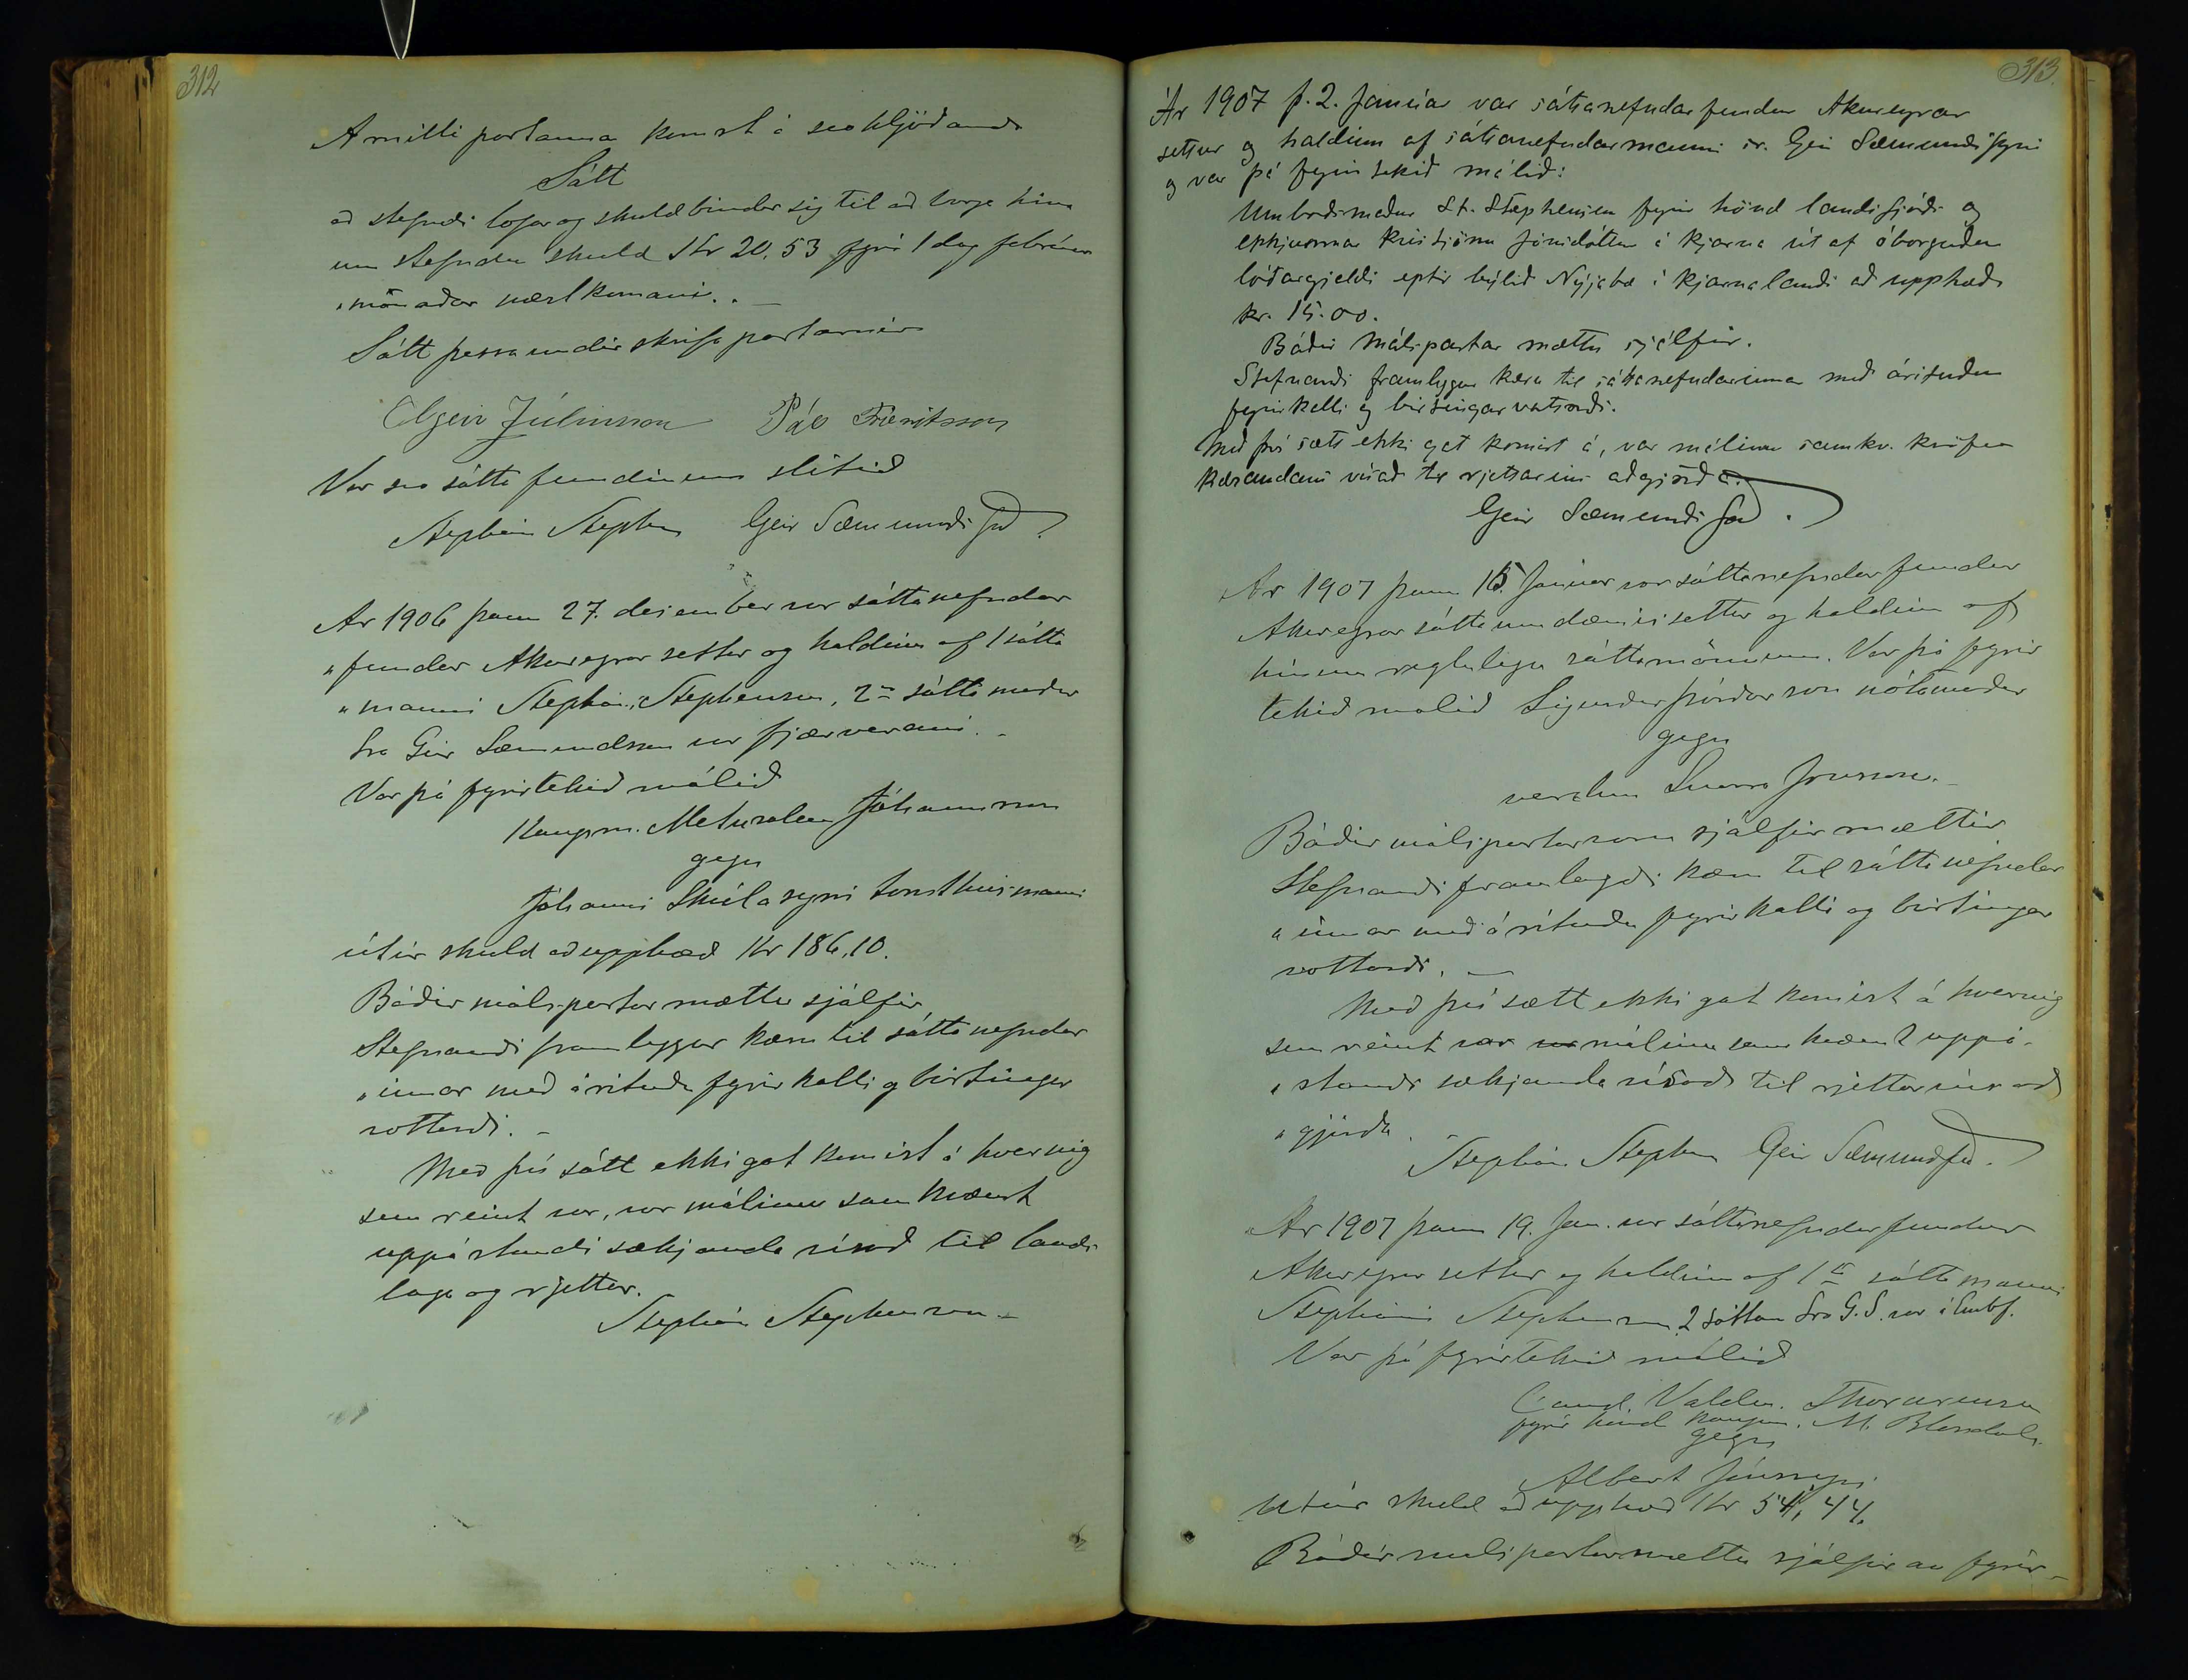 312
A milli partanna komst á svohljóðandi
Sátt
að stefndi lofar og skuldbindur sig til að borga hina
um stefndu skuld Kr 20,53 fyrir 1 dag febrúar
"mánaðar næstkomandi. . —
Sátt þessa undirskrifa partarnir
Elgeir Júlinsson Páll Friðriksson
Var svo sátta fundinum slitið
Stephán Stephen Geir Sæmundsson.
Ár 1906 þann 27. desember var sáttanefndar
"fundur Akureyrar settur og haldinn af 1 sátta
"manni Stepháni Stephensen, 2n sáttamaður
Sra Geir Sæmundsson var fjærverandi. -
Var þá fyrirtekið málið
Kaupm. Metusalem Jóhannsson
gegn
Jóhanni Skúlasyni tomthúsmanni
útúr skuld að upphæð Kr 186,10.
Báðir málspartar mættu sjálfir
Stefnandi framleggur kæru til sáttanefndar
"innar með árituðu fyrirkalli og birtingar
vottorði. -
Með því sátt ekki gat komist á hvernig
sem reint var, var málinu samkvæmt
uppástandi sækjanda vísað til lands
laga og rjettar.
Stephán Stephensen -
313.
Ár 1907 þ. 2. Janúar var sáttanefndarfundur Akureyrar
settur og haldinn af sáttanefndarmanni sr. Geir Sæmundssyni
og var þá fyrir tekið málið:
Umboðsmaður St. Stephensen fyrir hönd landssjóðs og
ekkjunnar Kristjönu Jónsdóttur á Kjarna út af óborguðu
lóðargjaldi eptir býlið Nýjabæ í Kjarnalandi að upphæð
kr. 15.00.
Báðir málspartar mættu sjálfir.
Stefnandi framleggur kæru til sáttanefndarinnar með árituðu
fyrirkalli og birtingarvottorði.
Með því sætt ekki gat komist á, var málinu samkv. kröfu
kærandans vísað til rjettarins aðgjörða.
Geir Sæmundsson.
Ár 1907 þann 15. Janúar var sáttanefndarfundur
Akureyrar sáttaumdæmis settur og haldinn af
hinum reglulegu sáttamönnum. Var þá fyrir
tekið málið Sigurður Þórðarson nótamaður
gegn
verzlun Snorra Jónssonar.
Báðir málspartar voru sjálfir mættir
Stefnandi framlagði kæru til sáttanefndar
"innar með árituðu fyrirkalli og birtingar
vottorði. —
Með því sætt ekki gat komist á hvernig
sem reint var var málinu samkvæmt uppá-
"standi sækjanda vísað til rjettarins að
"gjörða.
Stephán Stephen Geir Sæmundss.
Ár 1907 þann 19. Jan. var sáttanefndarfundur
Akureyrar settur og haldinn af 1ta sáttamanni
Stepháni Stephensen, 2 sáttam Sra G.S. var í Embf.
Var þá fyrirtekið málið
Cand. Valdm. Thorarensen
fyrir hönd kaupm. M. Blöndals
gegn
Albert Jónssyni
útúr skuld að upphæð Kr 54,44,
Báðir málspartar mættu sjálfir au fyrir-